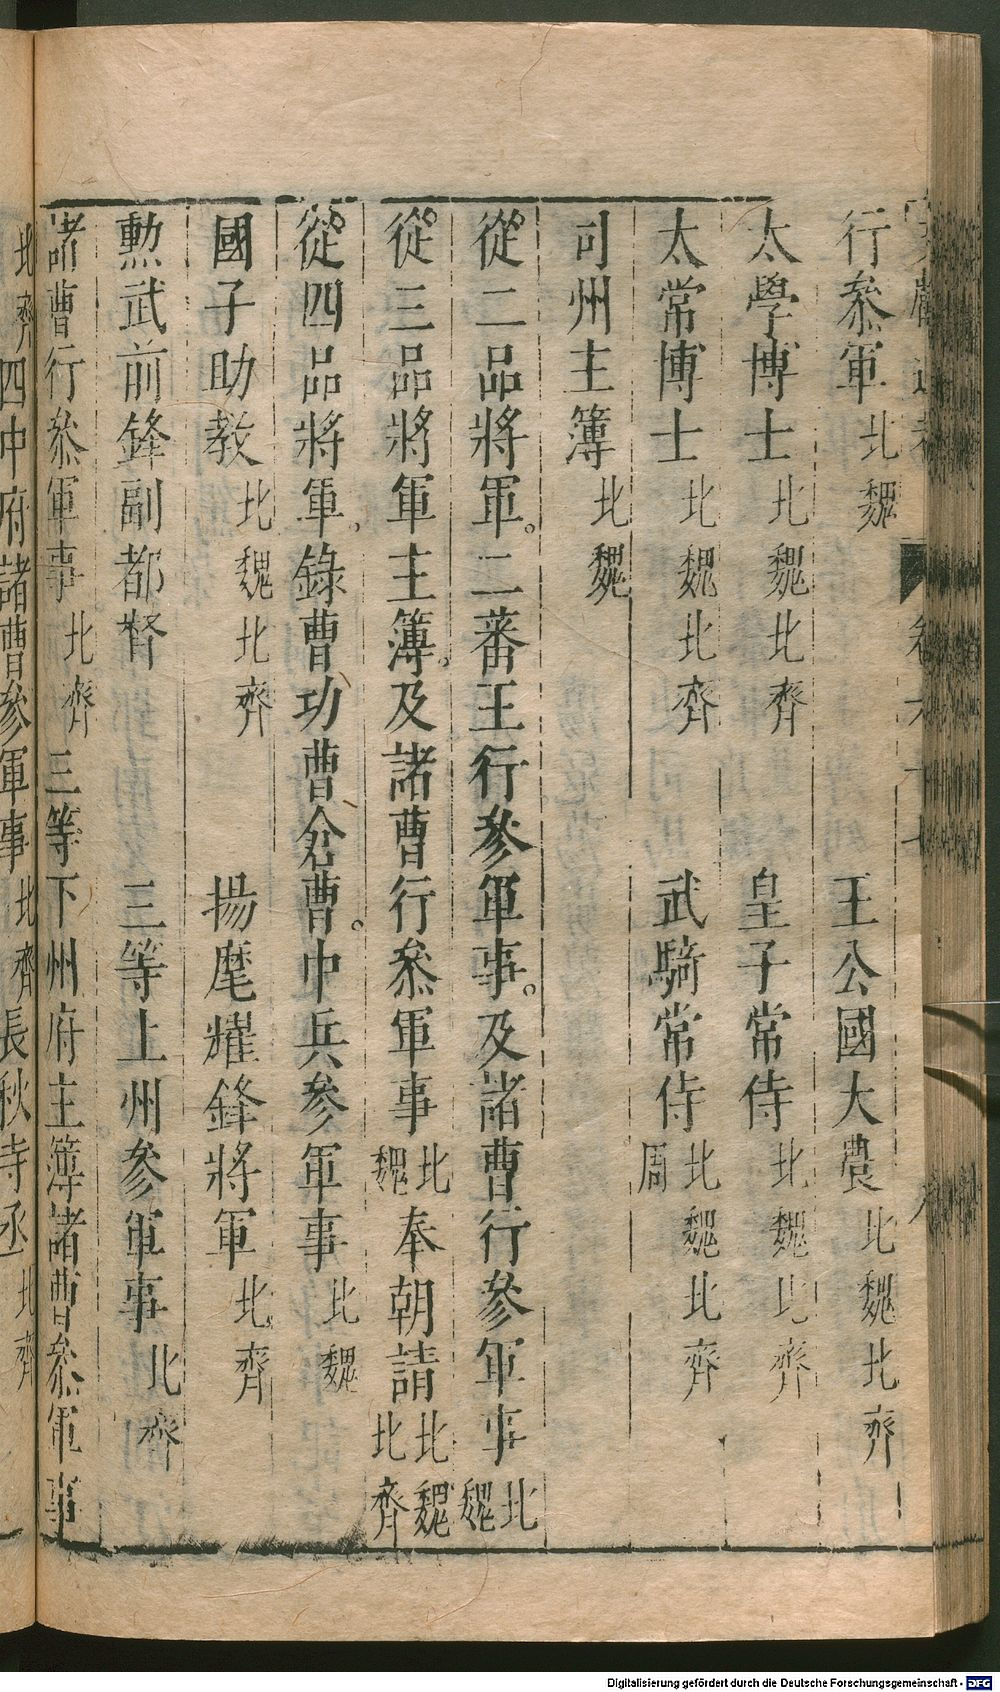 行叅軍北魏 王公國大農北魏北齊
太學博士北魏北齊 皇子常侍北魏北齊
太常博士北魏北齊 武騎常侍北魏北齊周
司州主簿北魏
從二品將軍。二蕃王行參軍事。及諸曹行參軍事北魏
從三品將軍主簿。及諸曹行叅軍事北魏 奉朝請北魏北齊
從四品將軍。錄曹功曹倉曹。中兵參軍事北魏
國子助教北魏北齊 揚麾耀鋒將軍北齊
勲武前鋒副都督 三等上州參軍事北齊
諸曹行叅軍事。北齊 三等下州府主簿諸曹叅軍事
北齊 四中府諸曹參軍事北齊 長秋寺丞北齊
Digitalisierung gefördert durch die Deutsche Forschungsgemeinschaft - DFG